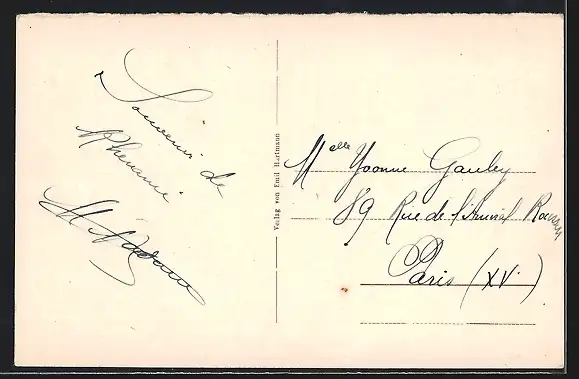 Souvenir de
Rhénanie
Verlag von Emil Hartmann
Melle Yvonne Gauley
89 Rue de l'Amiral Roussin
Paris (XV)